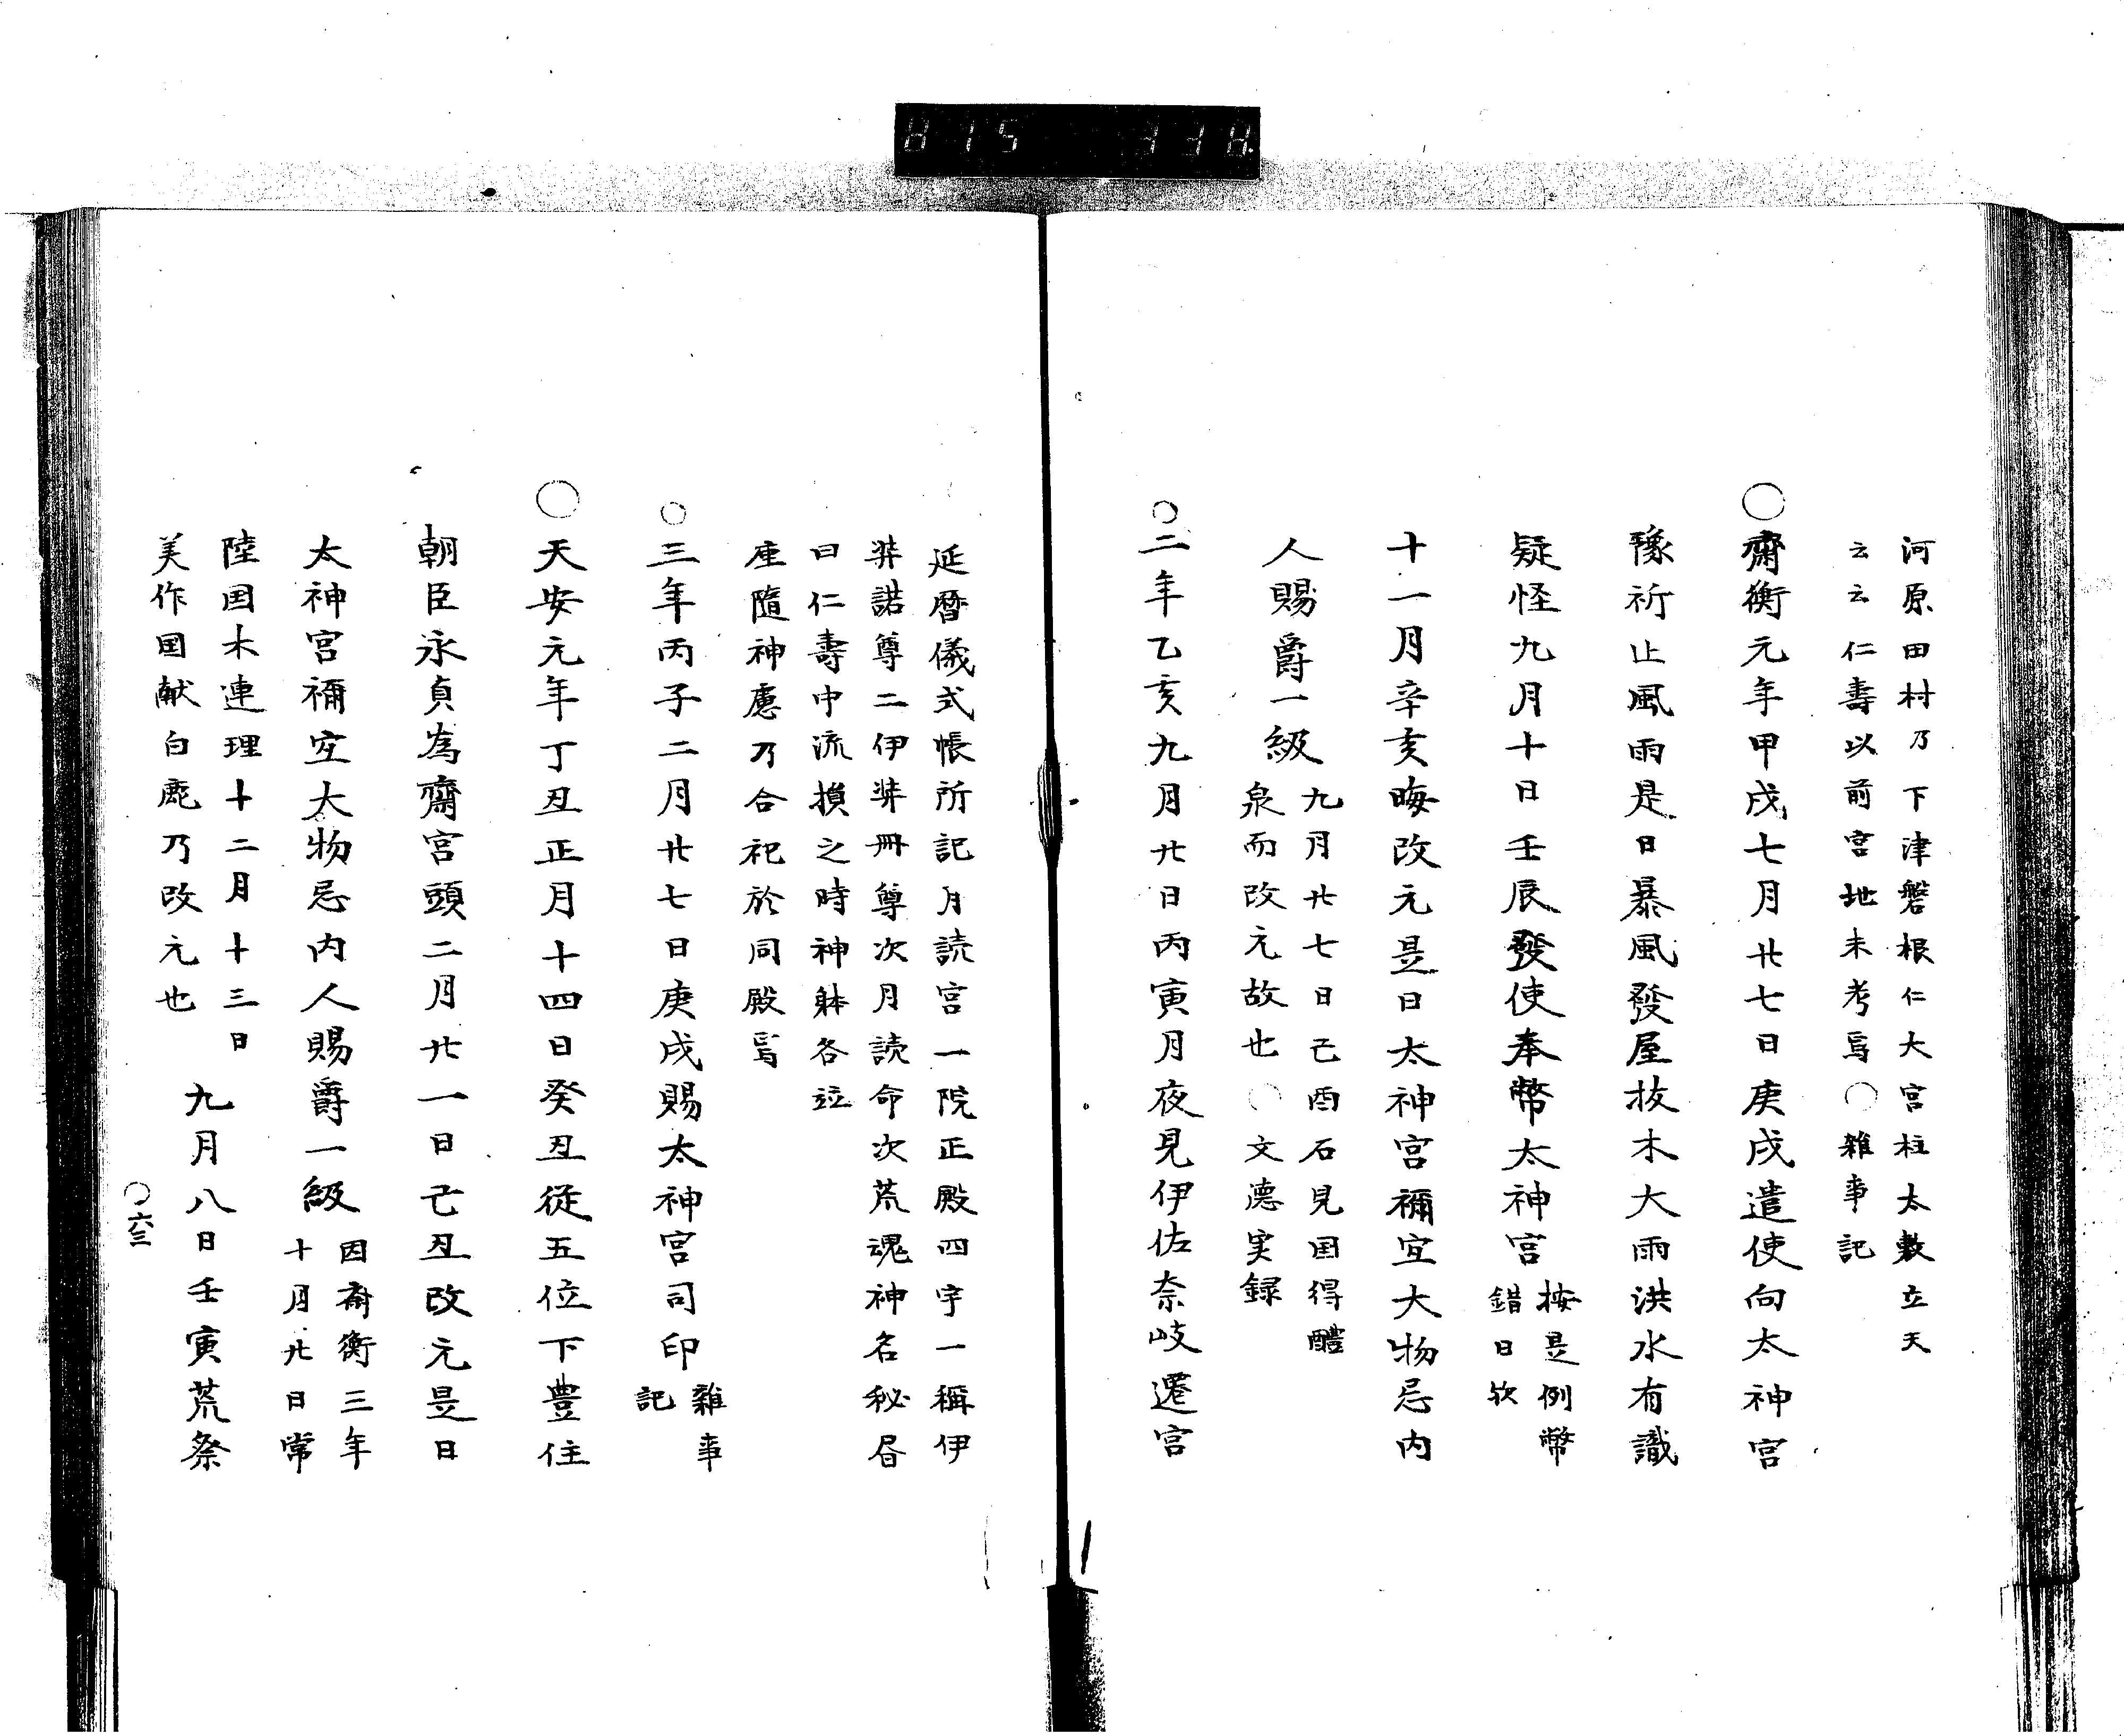 河原田村乃下津磐根仁大宮柱太敷立天
云云仁壽以前宮地未考焉○雜事記
○齋衡元年甲戌七月廿七日庚戌遣使向太神宮
豫祈止風雨是日暴風發屋拔木大雨洪水有識
疑怪九月十日壬辰發使奉幣太神宮
按是例幣
錯日欤
十一月辛亥晦改元是日太神宮禰宜大物忌内
人賜爵一級
九月廿七日己酉石見国得醴
泉而改元故也○文德実録
○二年乙亥九月廿日丙寅月夜見伊佐奈岐遷宮
延暦儀式帳所記月読宮一院正殿四宇一稱伊
弉諾尊二伊弉冊尊次月読命次荒魂神名秘眉
曰仁壽中流損之時神躰各竝
座隨神慮乃合祀於同殿焉
○三年丙子二月廿七日庚戌賜太神宮司印
雜事
記
○天安元年丁丑正月十四日癸丑從五位下豊住
朝臣永貞為齋宮頭二月廿一日己丑改元是日
太神宮禰宜大物忌内人賜爵一級
因齋衡三年
十月廿日常
陸国木連理十二月十三日
美作国献白鹿乃改元也
九月八日壬寅荒祭
○六三
815 338